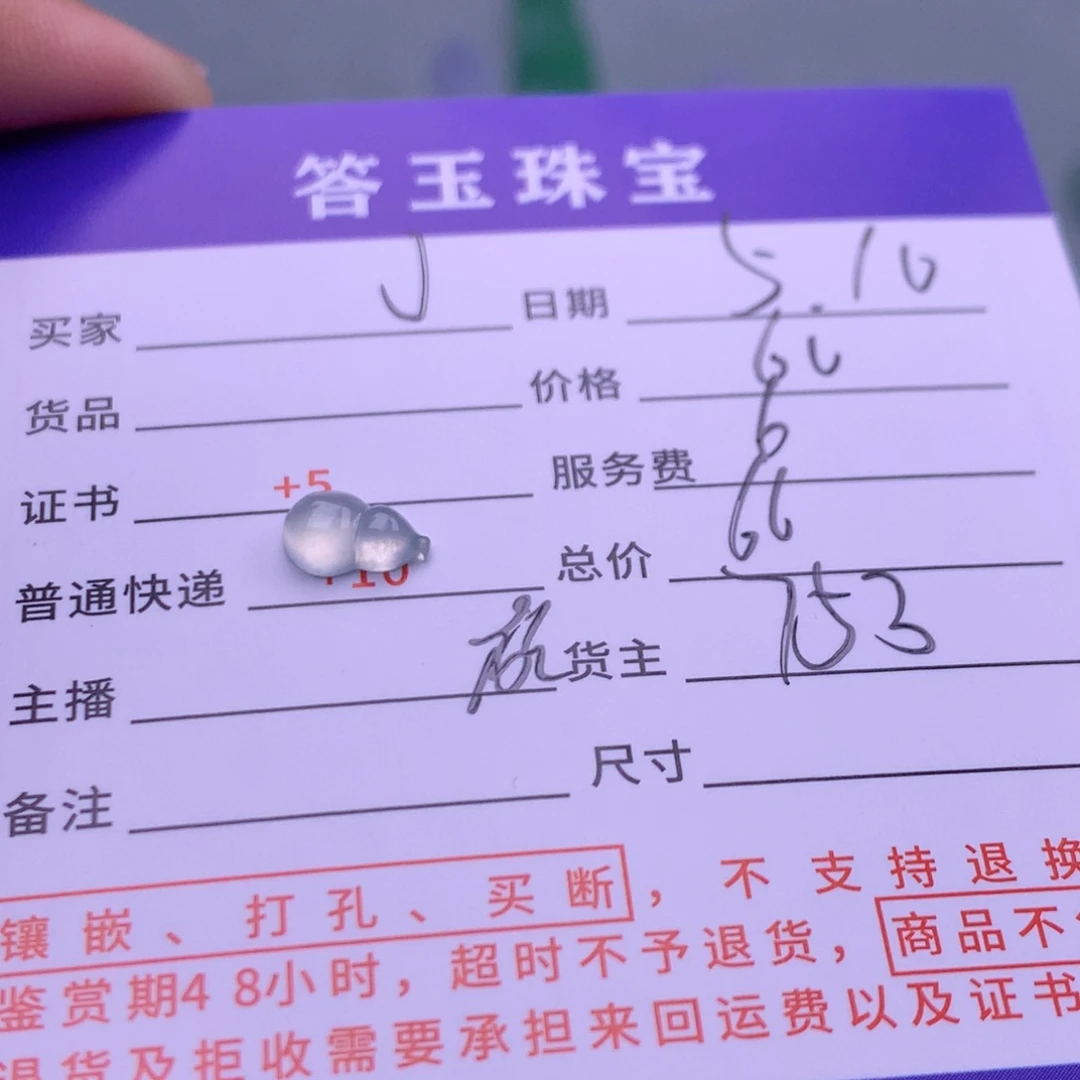 答玉珠宝
买家 J 日期 5.10
货品 价格 60
证书 +5 服务费 6
普通快递 +10 总价 66
主播 货主 753
备注 尺寸
镶嵌、打孔、买断，不支持退换
鉴赏期48小时，超时不予退货，商品不
退货及拒收需要承担来回运费以及证书